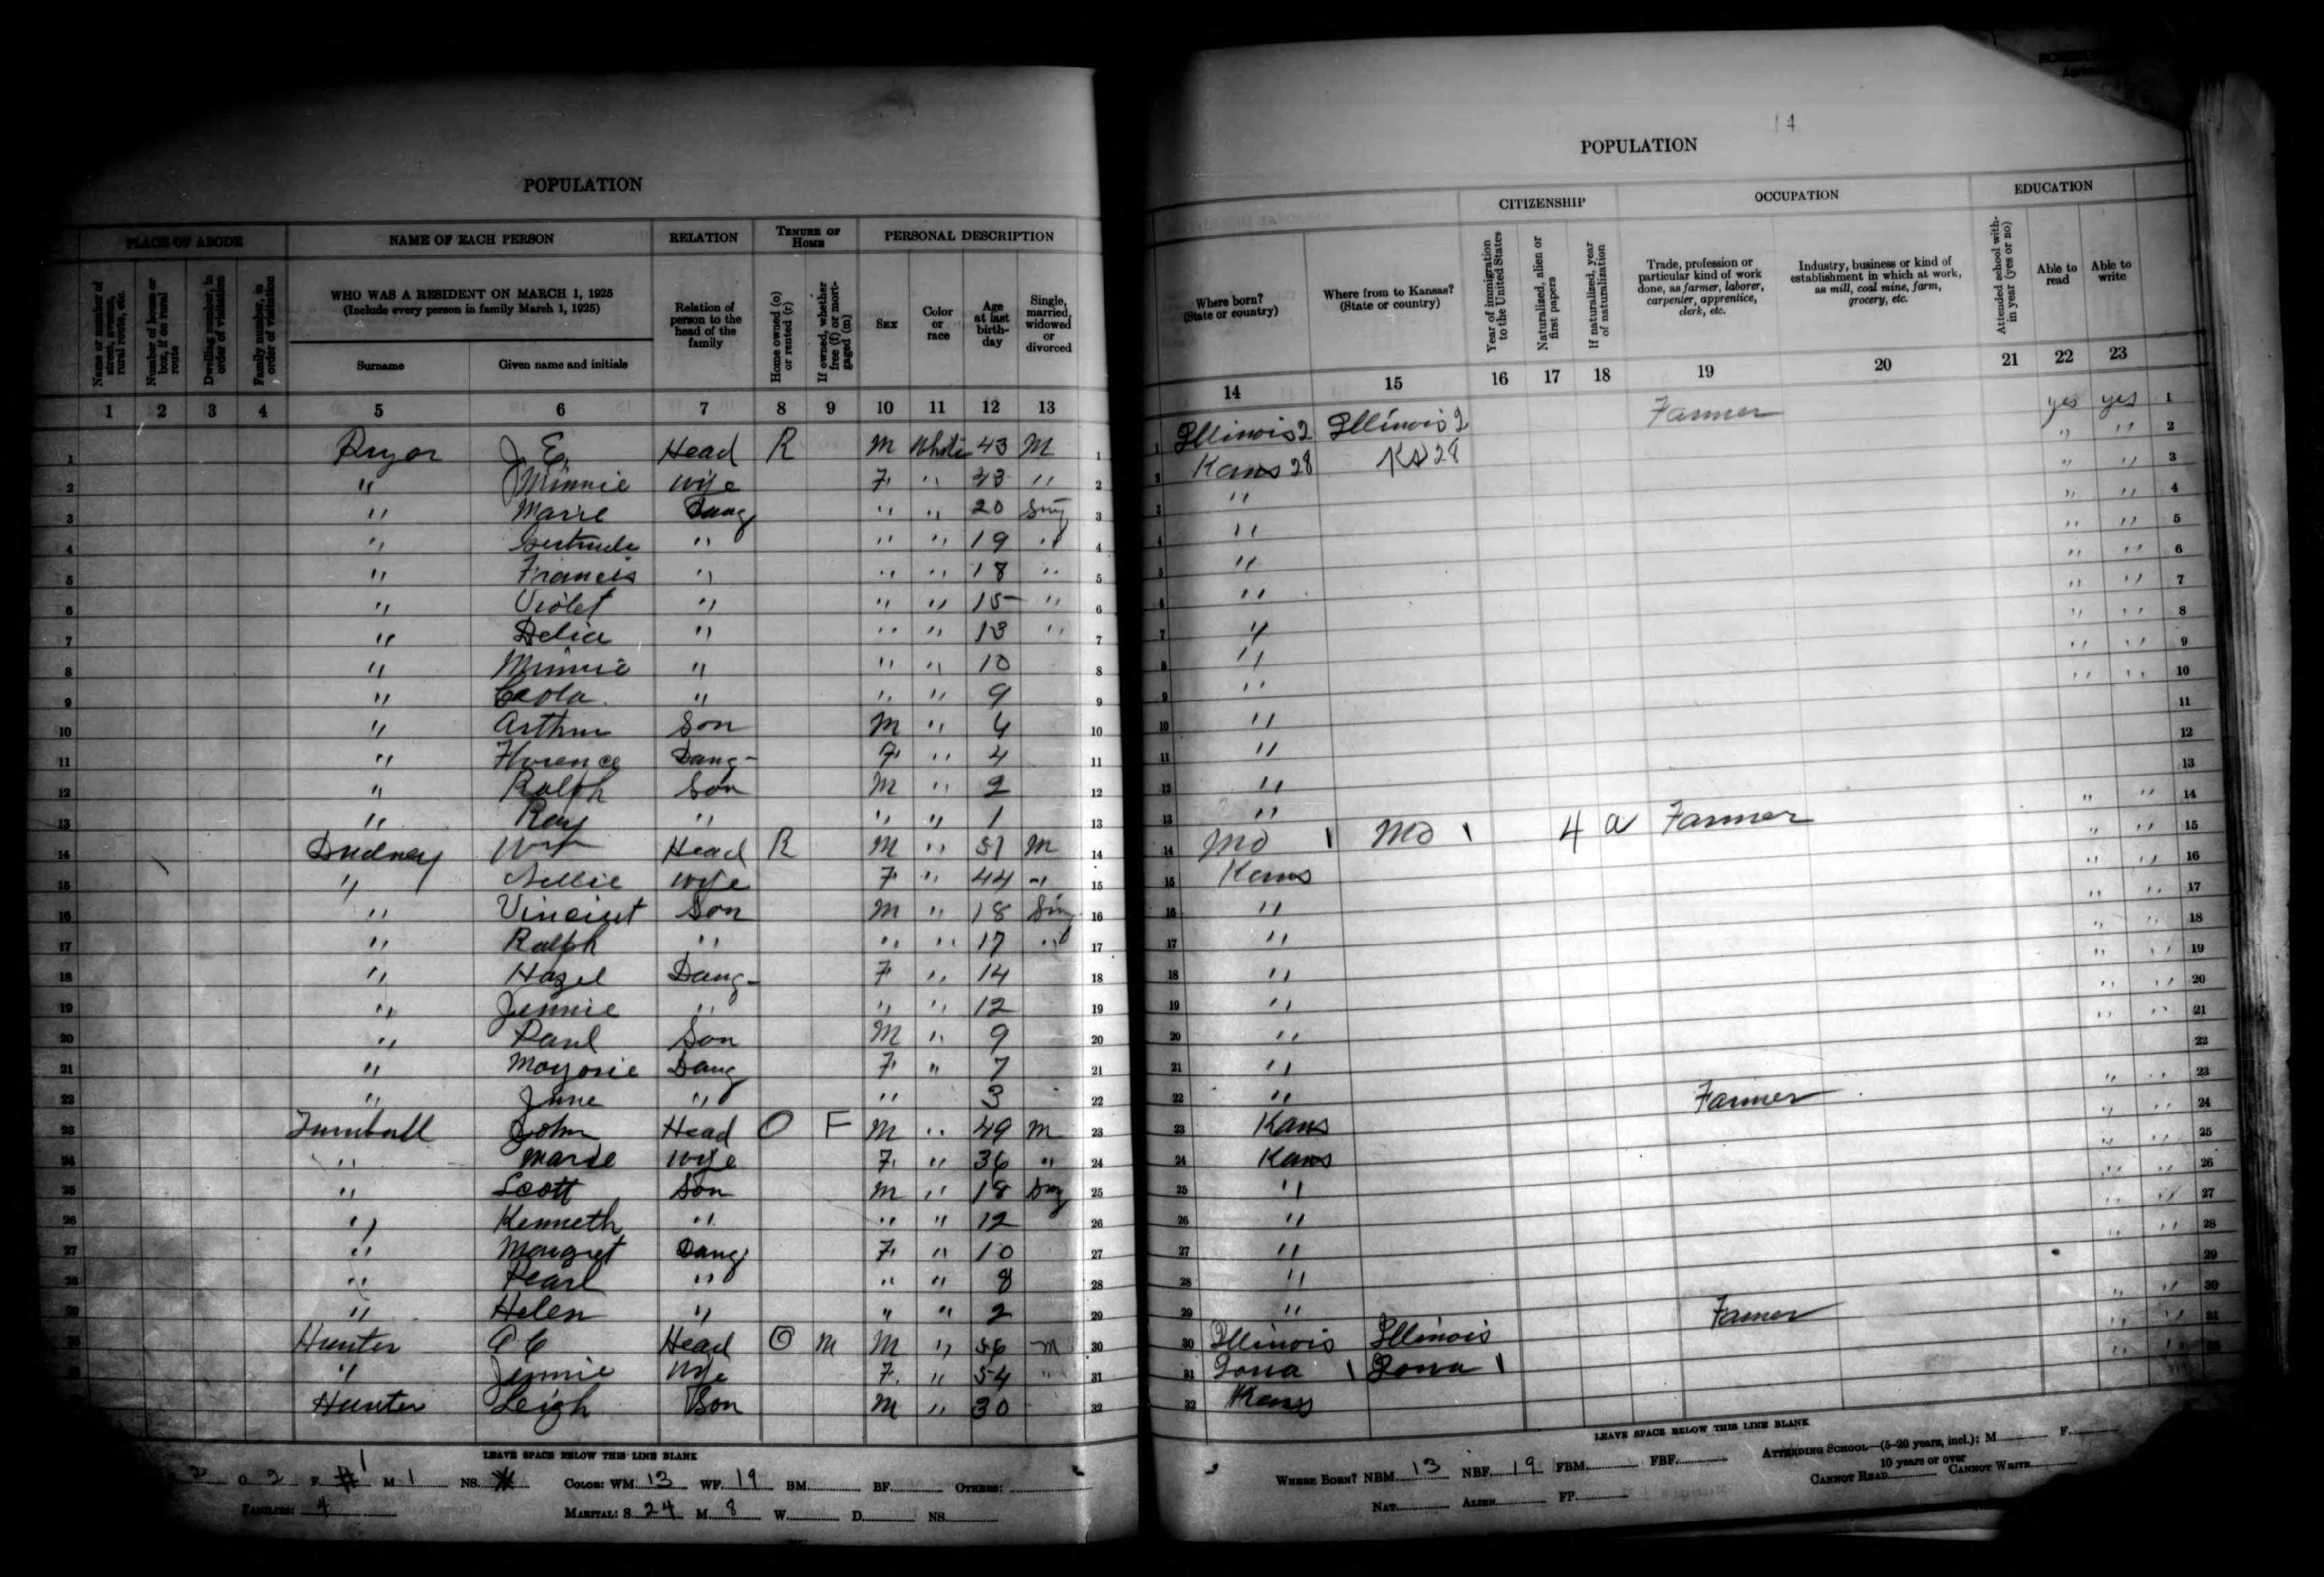 14
POPULATION
POPULATION
PLACE OF ABODE NAME OF EACH PERSON RELATION TENURE OF HOME PERSONAL DESCRIPTION
Name or number of street, avenue, rural route, etc. Number of house or box, if on rural route Dwelling number, in order of visitation Family number, in order of visitation
WHO WAS A RESIDENT ON MARCH 1, 1925
(Include every person in family March 1, 1925)
Surname Given name and initials
Relation of person to the head of the family
Home owned (o) or rented (r) If owned, whether free (f) or mortgaged (m)
SEX Color or race Age at last birthday Single, married, widowed or divorced
1 2 3 4 5 6 7 8 9 10 11 12 13
1 Pryor J E Head R M White 43 M 1
2 " Minnie wife F " 43 " 2
3 " Marie Daug " " 20 Sing 3
4 " Gertrude " " " 19 " 4
5 " Francis " " " 18 " 5
6 " Violet " " " 15 " 6
7 " Delia " " " 13 " 7
8 " Minnie " " " 10 8
9 " " " " 9 9
10 " Arthur Son M " 4 10
11 " Florence Daug- F " 4 11
12 " Ralph Son M " 2 12
13 " Ray " " " 1 13
14 Dudney Wm Head R M " 51 M 14
15 " Nellie wife F " 44 " 15
16 " Vincint Son M " 18 Sing 16
17 " Ralph " " " 17 " 17
18 " Hazel Daug- F " 14 18
19 " Jennie " " " 12 19
20 " Paul Son M " 9 20
21 " Marjorie Daug F " 7 21
22 " June " " 3 22
23 Turnbull John Head O F M " 49 M 23
24 " Marie wife F " 36 " 24
25 " Scott Son M " 18 Sing 25
26 " Kenneth " " " 12 26
27 " Margret Daug F " 10 27
28 " Pearl " " " 8 28
29 " Helen " " " 2 29
30 Hunter Head O M M " 56 M 30
" Jennie Wife F " 54 " 31
Hunter Leigh Son M " 30 32
LEAVE SPACE BELOW THIS LINE BLANK
2 O. 2 F. 1 M 1 NS. COLOR: WM. 13 WF. 19 BM. BF. OTHERS:
FAMILIES: 4 MARITAL: S. 24 M. 8 W. D. NS.
CITIZENSHIP OCCUPATION EDUCATION
Where born? (State or country) Where from to Kansas? (State or country)
Year of immigration to the United States Naturalized, alien or first papers If naturalized, year of naturalization
Trade, profession or particular kind of work done, as farmer, laborer, carpenter, apprentice, clerk, etc.
Industry, business or kind of establishment in which at work, as mill, coal mine, farm, grocery, etc.
Attended school within year (yes or no) Able to read Able to write
14 15 16 17 18 19 20 21 22 23
1 Illinois 2 Illinois 2 Farmer yes yes 1
2 Kans 28 Ks 28 " " 2
3 " " " 3
4 " " " 4
5 " " " 5
6 " " " 6
7 " " " 7
8 " " " 8
9 " " " 9
10 " " " 10
11 " 11
12 " 12
13 " 13
14 Mo 1 Mo 1 4 a Farmer " " 14
15 Kans " " 15
16 " " " 16
17 " " " 17
18 " " " 18
19 " " " 19
20 " " " 20
21 " " " 21
22 " 22
23 Kans Farmer " " 23
24 Kans " " 24
25 " " " 25
26 " " " 26
27 " " " 27
28 " " " 28
29 " 29
30 Illinois Illinois Farmer " " 30
31 Iowa 1 Iowa 1 " " 31
32 Kans " "
LEAVE SPACE BELOW THIS LINE BLANK
WHERE BORN? NBM. 13 NBF. 19 FBM. FBF. ATTENDING SCHOOL—(5-20 years, incl.): M F.
10 years or over
NAT. ALIEN. FP. CANNOT READ CANNOT WRITE